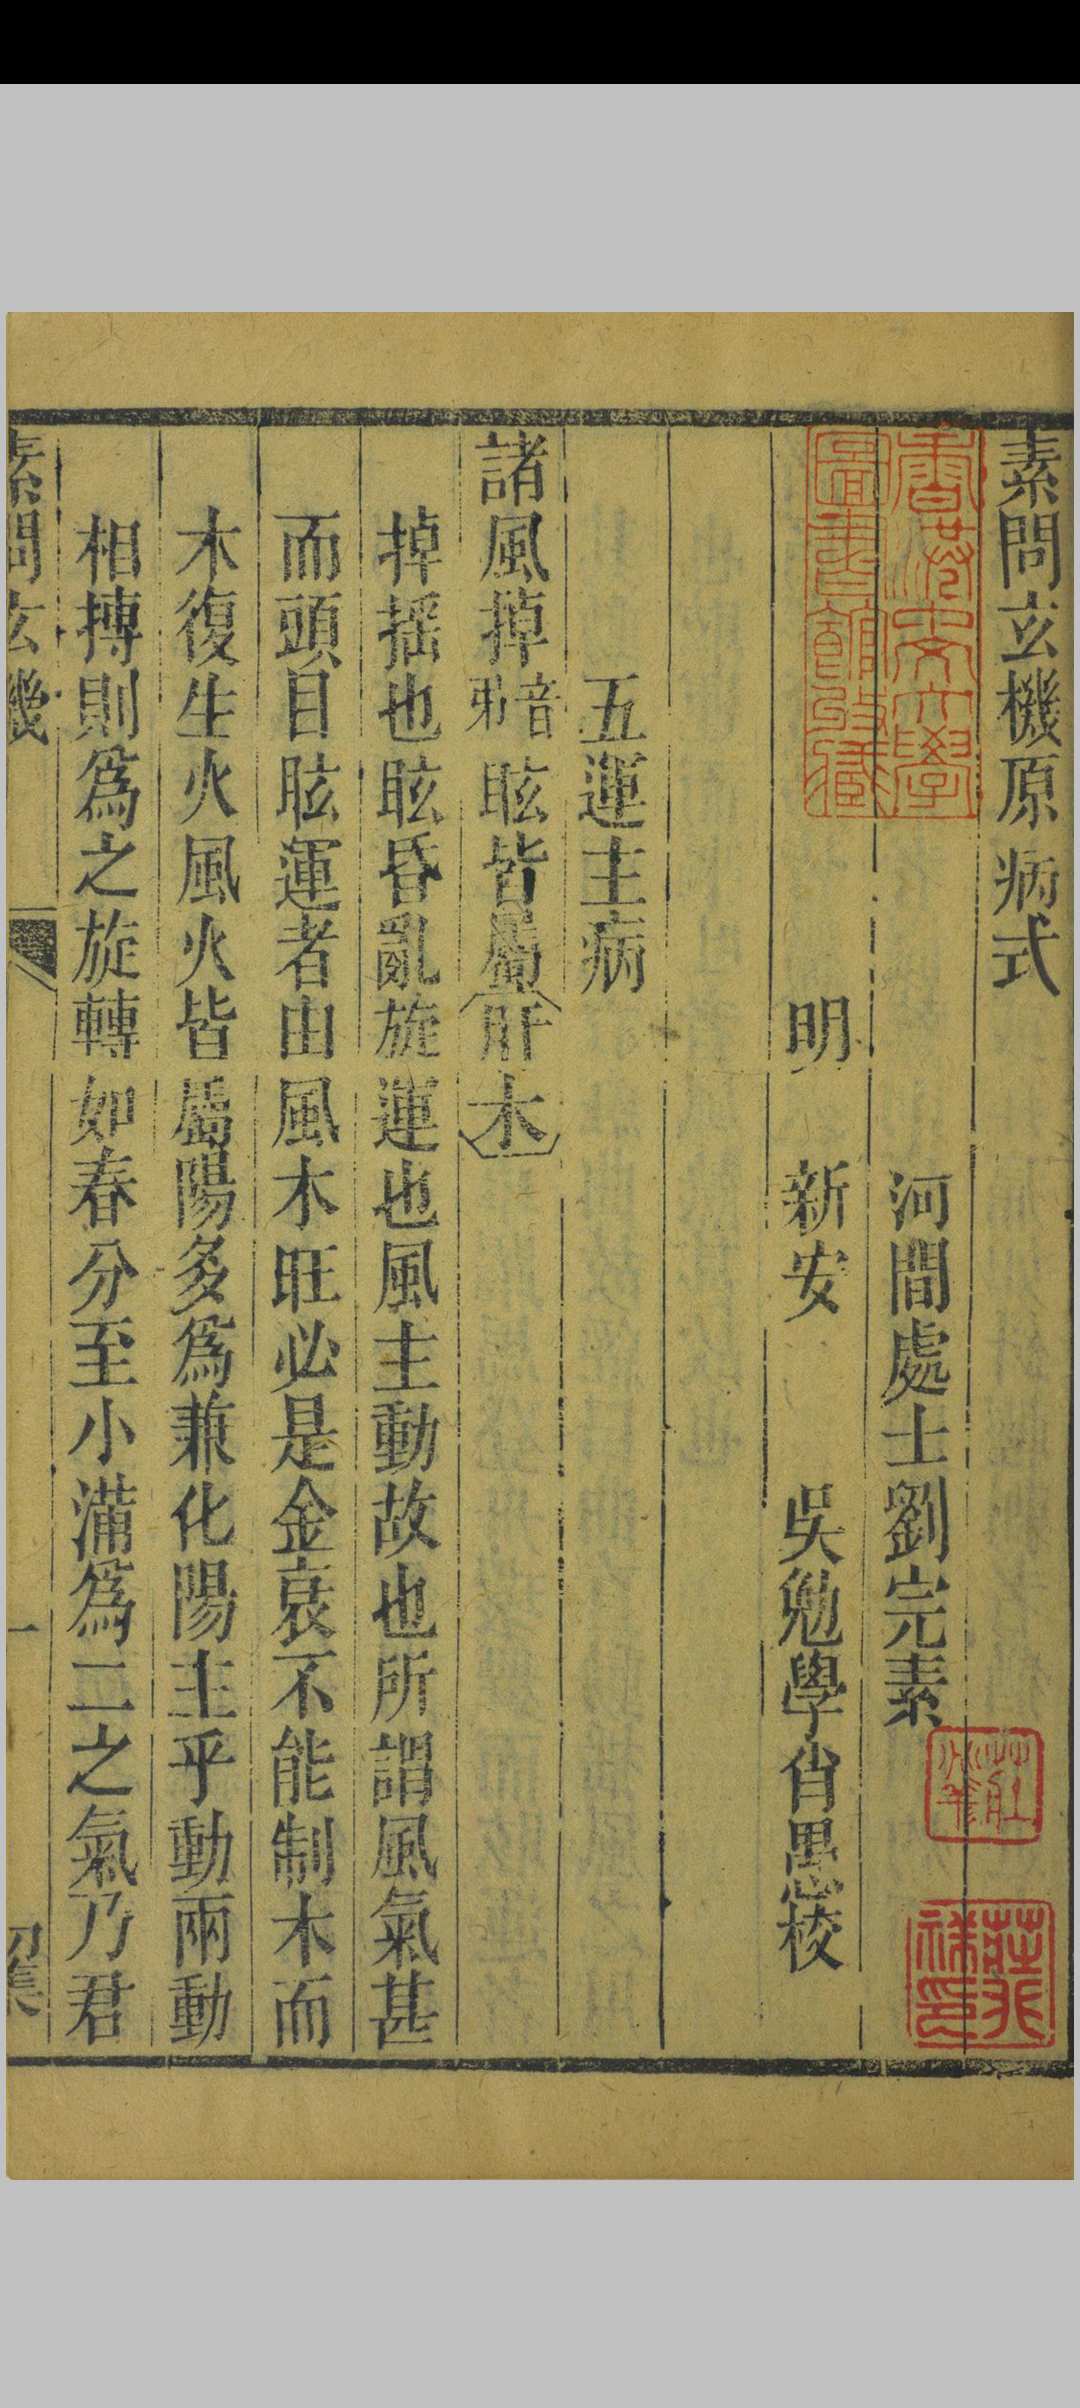 素問玄機原病式
河間處士劉完素
明 新安 吳勉學肖愚校
五運主病
諸風掉音弔眩皆屬肝木
掉搖也眩昏亂旋運也風主動故也所謂風氣甚
而頭目眩運者由風木旺必是金衰不能制木而
木復生火風火皆屬陽多爲兼化陽主乎動兩動
相搏則爲之旋轉如春分至小滿爲二之氣乃君
素問玄機
一